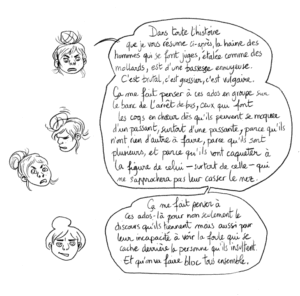 Dans toute l'histoire
que je vous résume ci-après, la haine des
hommes qui se font juges, étalée comme des
mollards, est d'une bassesse ennuyeuse.
C'est brutal, c'est grossier, c'est vulgaire.
Ça me fait penser à ces ados en groupe sur
le banc de l'arrêt de bus, ceux qui font
les coqs en chœur dès qu'ils peuvent se moquer
d'un passant, surtout d'une passante, parce qu'ils
n'ont rien d'autre à faire, parce qu'ils sont
plusieurs, et parce qu'ils vont caqueter à
la figure de celui - surtout de celle - qui
ne s'approchera pas leur casser le nez.
Ça me fait penser à
ces ados-là pour non seulement le
discours qu'ils tiennent mais aussi pour
leur incapacité à voir la foule qui se
cache derrière la personne qu'ils insultent.
Et qu'on va faire bloc tous ensemble.